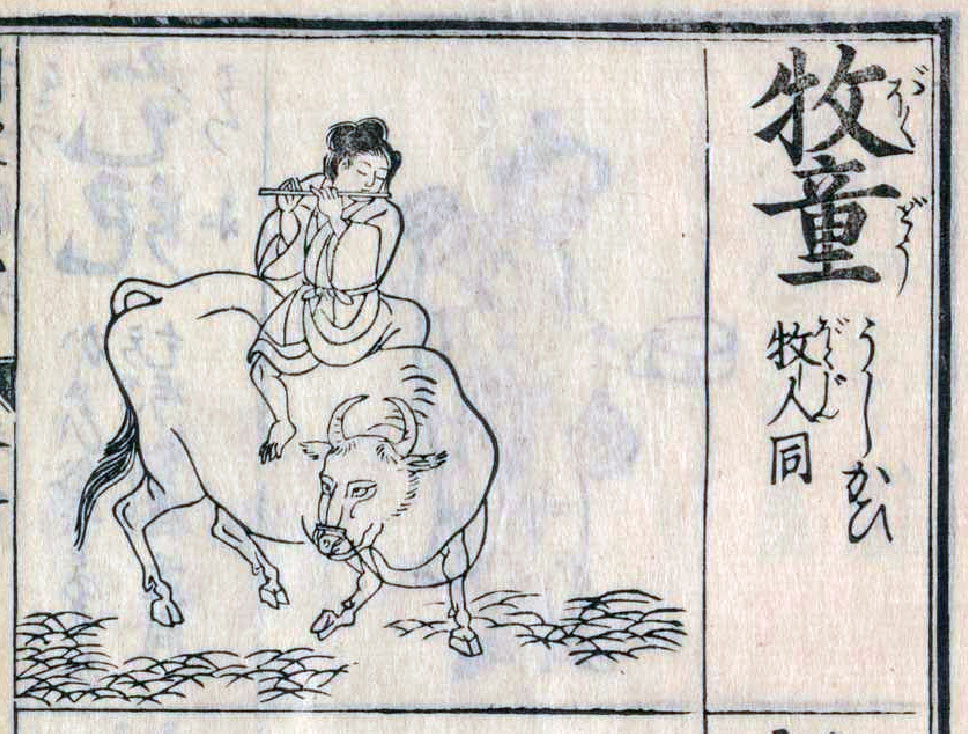 牧童
ぼくどう
うしかひ
牧人同
ぼくじん